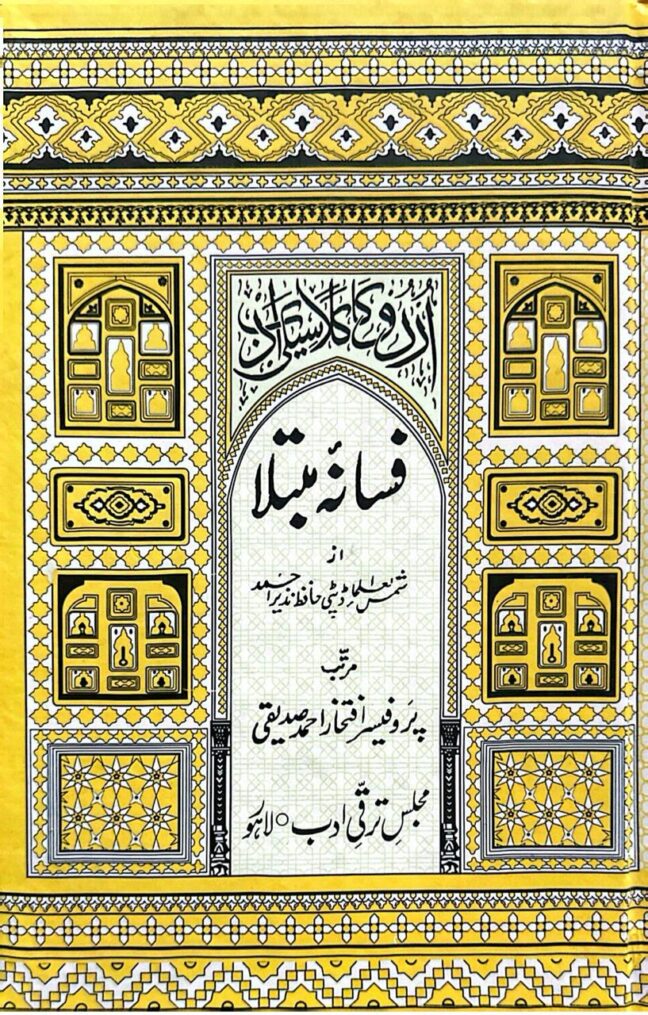 اُردو کا کلاسیکی ادب
فسانۂ مبتلا
از
شمس العلما ڈپٹی حافظ نذیر احمد
مرتّب
پروفیسر افتخار احمد صدیقی
مجلسِ ترقّیِ ادب ○ لاہور